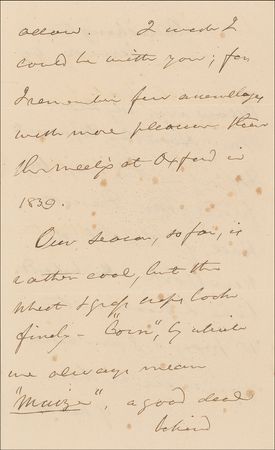 allow. I wish I
could be with you; for
I remember few assemblages
with more pleasure than
the meet'g at Oxford in
1839.
Our season, so far, is
rather cool, but the
wheat & grass crops look
finely - "Corn", by which
we always mean
"Maize", a good deal
behind